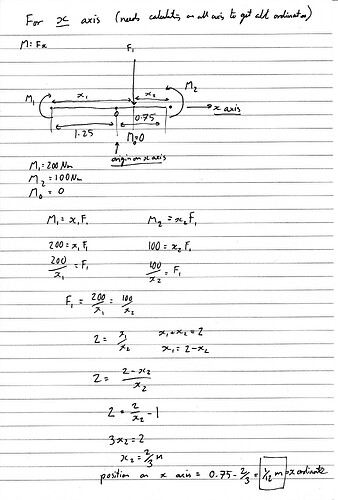 For x axis (needs calculating on all axis to get all ordinates)
M = Fx
F₁
M₁ x₁ x₂ M₂
x axis
0
1.25 0.75
M₀=0
origin on x axis
M₁ = 200Nm
M₂ = 100Nm
M₀ = 0
M₁ = x₁F₁ M₂ = x₂F₁
200 = x₁F₁ 100 = x₂F₁
200/x₁ = F₁ 100/x₂ = F₁
F₁ = 200/x₁ = 100/x₂
2 = x₁/x₂ x₁+x₂ = 2
x₁ = 2-x₂
2 = 2-x₂/x₂
2 = 2/x₂ - 1
3x₂ = 2
x₂ = 2/3 m
position on x axis = 0.75 - 2/3 = 1/12 m = x ordinate